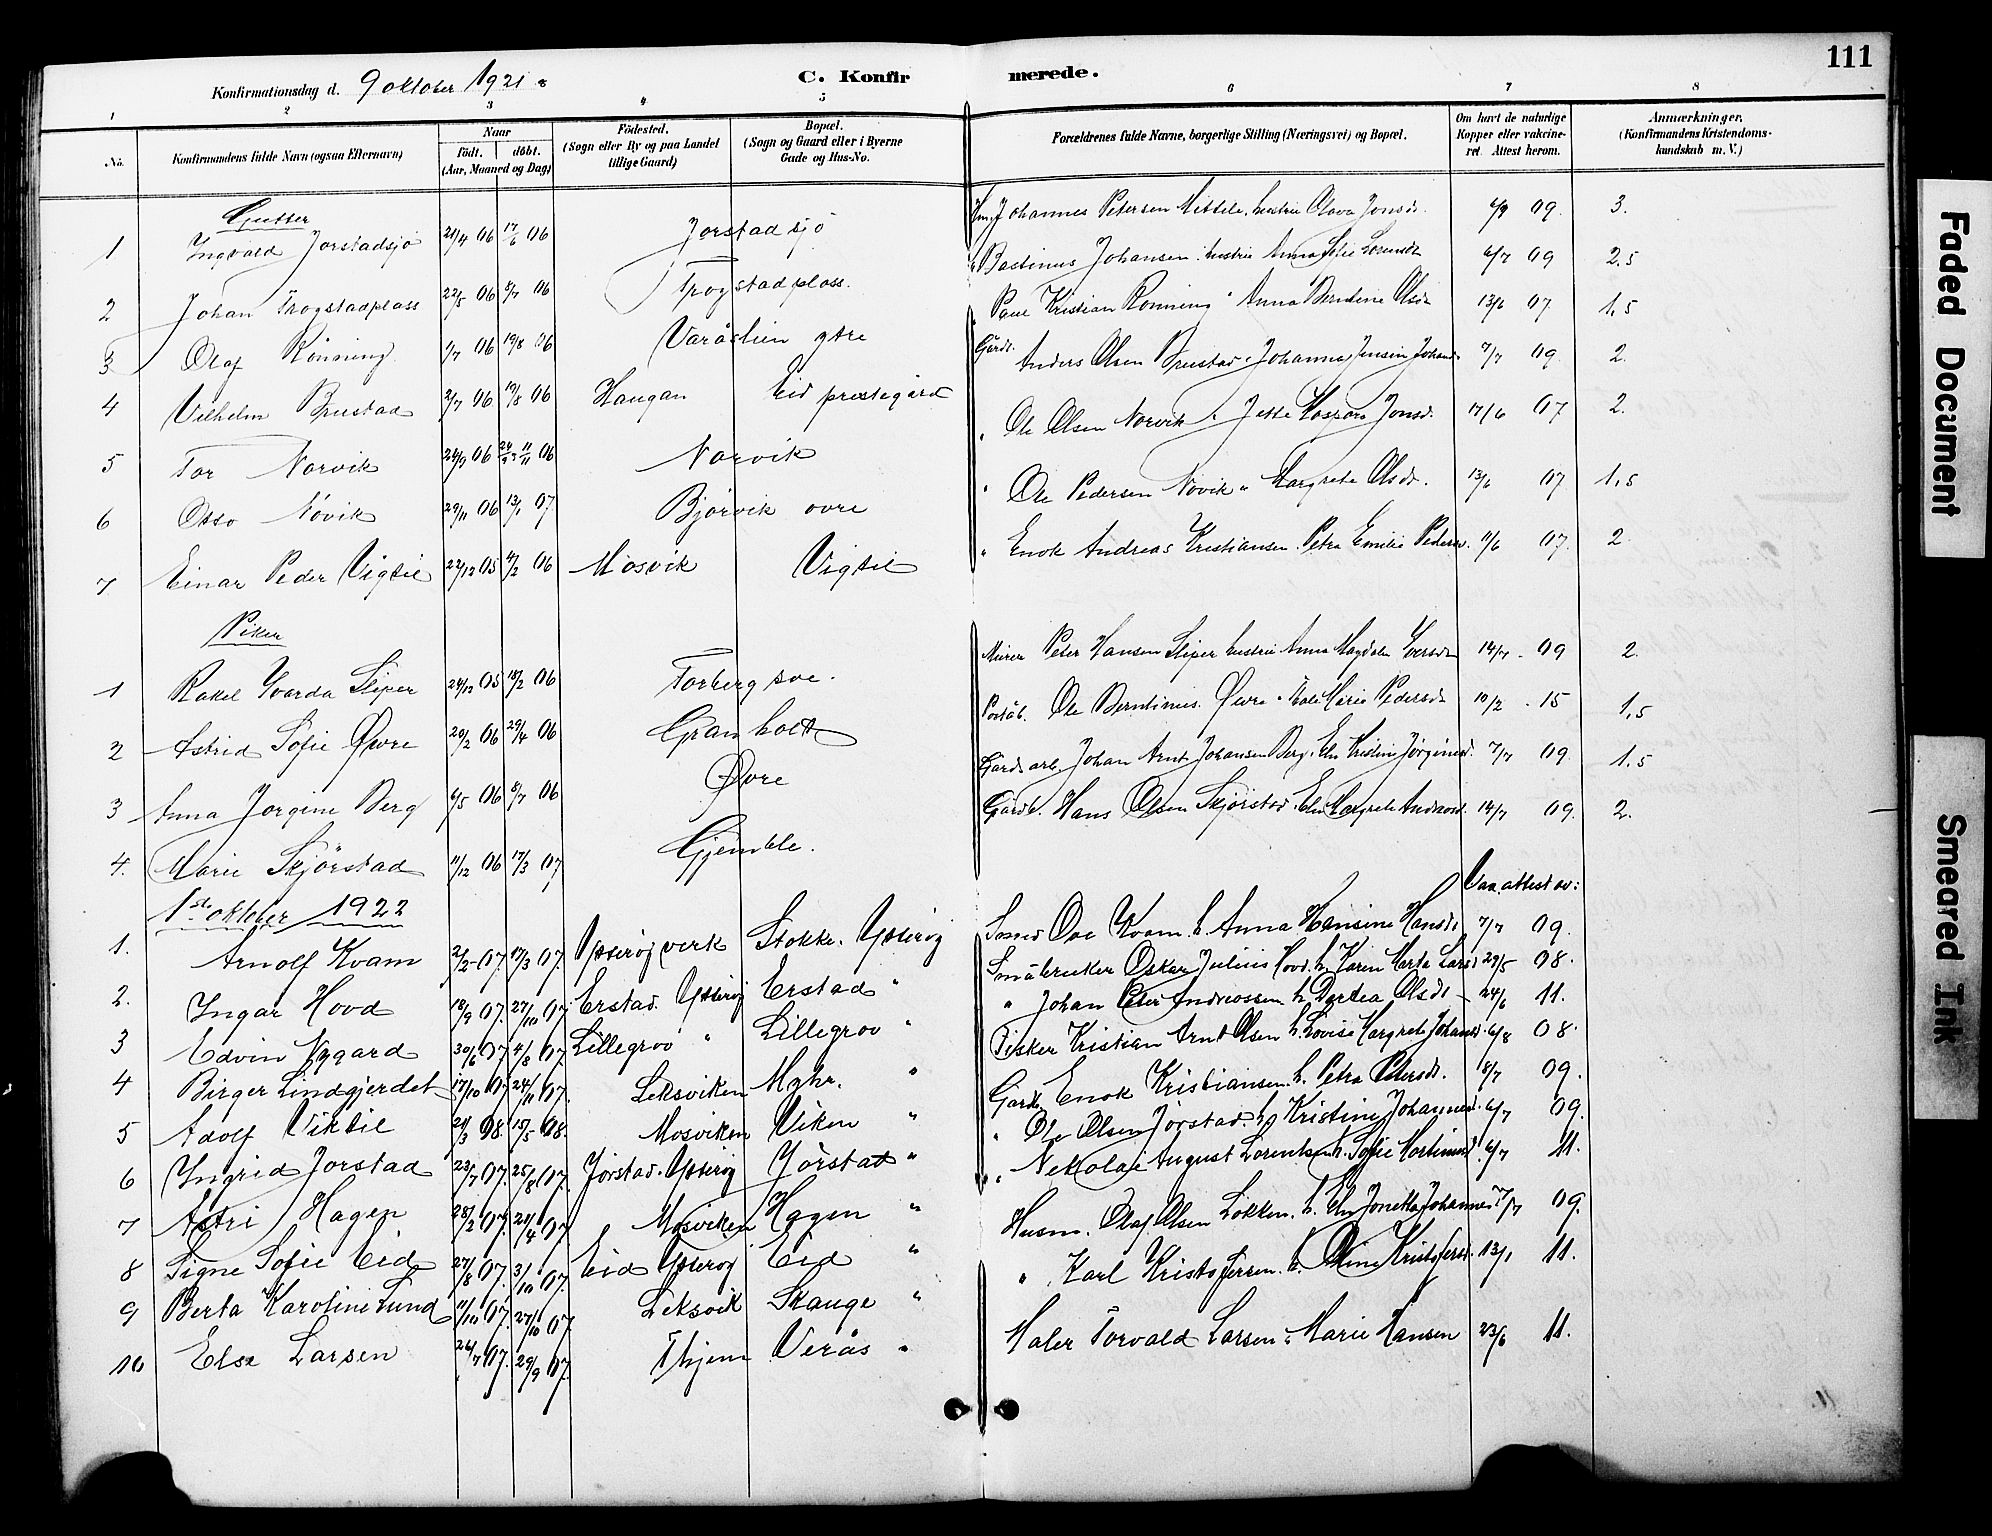 111
Konfirmationsdag d. 9 oktober 1921
C. Konfirmerede.
1 2 3 4 5 6 7 8
No. Konfirmandens fulde Navn (ogsaa Efternavn) Naar födt. döbt. (Aar, Maaned og Dag) Födested. (Sogn eller By og paa Landet tillige Gaard) Bopæl. (Sogn og Gaard eller i Byerne Gade og Hus-No. Forældrenes fulde Navne, borgerlige Stilling (Næringsvei) og Bopæl. Om havt de naturlige Kopper eller vakcineret. Attest herom. Anmærkninger. (Konfirmandens Kristendomskundskab m. V.)
Gutter
1 Ingvald Jorstadsjö 21/4 06 17/6 06 Jorstadsjö Johannes Petersen hustru Olava Jonsd. 09. 3.
2 Johan Trogstadplass 22/5 06 8/7 06 Trogstadplass. Bastinus Johansen hustru Anna Sofie Lorentsd. 6/7 09 2.5
3 Olaf Rönning 1/7 06 19/8 06 Varåslien ytre Paul Kristian Rönning " Anna Berntine Olsd. 13/6 07 1,5
4 Vilhelm Brustad 2/7 06 19/8 06 Haugan Eid prestegård Gårdb. Anders Olsen Brustad. Johanna Jensine Johansd. 7/7 09. 2.
5 Tor Norvik 24/9 06 11/11 06 Norvik " Ole Olsen Norvik Jette Kaspara Jonsd. 17/6 07 2.
6 Otto Növik 29/11 06 13/1 07 Bjørvik ovre " Ole Pedersen Növik " Margrete Olsd. 13/6 07 1,5
7 Einar Peder Vigtil 22/12 05 4/2 06 Mosvik Vigtil " Enok Andreas Kristiansen. Petra Emilie Pedersd. 11/6 07. 2
Piker
1 Rakel Varda Sliper 24/12 05 18/2 06 Forberg sve. Murer Peter Hansen Sliper hustru Anna Magdale Iversd. 14/7 09 2.
2 Astrid Sofie Øvre 20/2 06 29/4 06 Granholt Poståb. Ole Berntinus Øvre Marie Pedersd. 10/2 15 1,5
3 Anna Jorgine Berg 6/5 06 8/7 06 Øvre Gårdsarb. Johan Arnt Johansen Berg. Eln Kristine Jørginesd. 7/7 09. 1.5
4. Marie Skjörstad 11/12 06 17/3 07 Gjemble. Gårdb. Hans Olsen Skjørstad. Eln Margrete Andreasd. 14/7 09. 2.
1st oktober 1922 Vax. attest av:
1. Arnolf Kvam 2/2 07. 17/3 07. Ytterøy verk Stokke. Ytterøy Ove Kvam. h. Anna Hansine Hansd. 7/7 09.
2. Ingar Hovd 18/9 07. 27/10 07 Erstad. Ytterøy Erstad " Småbruker Oskar Julius Hovd. h. Karen Marta Larsd. 29/5 08.
3 Edvin Nygard 30/6 07 4/8 07. Lillegrov " Lillegrov " " Johan Peter Andreassen h. Dortea Olsdt 24/6 11.
4 Birger Lindgjerdet 17/10 07 24/11 07. Leksviken Myhr. " Fisker Kristian Arnt Olsen h. Lovise Margrete Johansd. 6/8 08.
5 Adolf Viktil 21/3 08. 15/5 08. Mosviken Viken " Gårdb. Enok Kristiansen h. Petra Petersd. 8/7 09.
6 Ingrid Jorstad 23/7 07. 25/8 07. Jørstad. Ytterøy Jörstad " " Ole Olsen Jørstad. h. Kristine Johannesd. 6/7 09.
7 Astri Hagen 28/2 07. 21/4 07 Mosviken Hagen " " Nekolai August Lorentsen h. Sofie Mortinusd. 6/7 11.
8 Signe Sofie Eid 27/8 07. 3/10 07. Eid Ytterøy Eid " Husm. Olaf Olsen Lökken. h. Eln Jonetta Johannesd. 7/7 09.
9 Berta Karoline Lund 11/10 07. 27/10 07. Leksvik Skauge " " Karl Kristofersen. h. Oline Kristofersd. 13/1 11.
10 Elsa Larsen 26/7 07. 29/9 07. Thjem Verås " Maler Torvald Larsen " Marie Hansen 23/6 11.
Faded Document
Smeared Ink